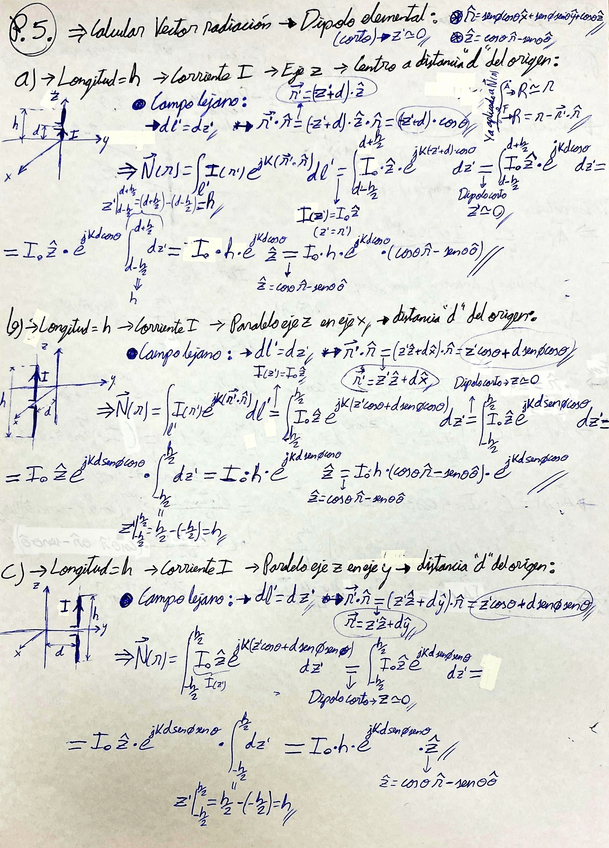 P.5. ⇒ Calcular Vector radiación → Dipolo elemental: (corto) → z'≃0
⊛ r̂ = senθcosφx̂+senθsenφŷ+cosθẑ
⊛ ẑ = cosθr̂-senθθ̂
a) → Longitud = h → Corriente I → Eje z → Centro a distancia "d" del origen:
● Campo lejano: r⃗' = (z'+d)·ẑ
→ dl' = dz' → r⃗'·r̂ = (z'+d)·ẑ·r̂ = (z'+d)·cosθ
R ≃ r
R = r - r⃗'·r̂
⇒ N⃗(r) = ∫_l' I(r') e^{jK(r⃗'·r̂)} dl' = ∫_{d-h/2}^{d+h/2} I₀·ẑ·e^{jK(z'+d)·cosθ} dz' = ∫_{d-h/2}^{d+h/2} I₀ẑ·e^{jKdcosθ} dz' =
z'|_{d-h/2}^{d+h/2} = (d+h/2)-(d-h/2) = h
I(z') = I₀ẑ
(z'=r')
Dipolo corto
z'≃0
= I₀ẑ·e^{jKdcosθ} ∫_{d-h/2}^{d+h/2} dz' = I₀·h·e^{jKdcosθ} ẑ = I₀·h·e^{jKdcosθ}·(cosθr̂-senθθ̂)
h
ẑ = cosθr̂-senθθ̂
b) → Longitud = h → Corriente I → Paralelo eje z en eje x, → distancia "d" del origen:
● Campo lejano: → dl' = dz' → r⃗'·r̂ = (z'ẑ+dx̂)·r̂ = z'cosθ+dsenθcosφ
I(z') = I₀ẑ
r⃗' = z'ẑ+dx̂
Dipolo corto → z≃0
⇒ N⃗(r) = ∫_l' I(r') e^{jK(r⃗'·r̂)} dl' = ∫_{-h/2}^{h/2} I₀ẑ e^{jK(z'cosθ+dsenθcosφ)} dz' = ∫_{-h/2}^{h/2} I₀ẑ e^{jKdsenθcosφ} dz' =
= I₀ẑ e^{jKdsenθcosφ} · ∫_{-h/2}^{h/2} dz' = I₀·h·e^{jKdsenθcosφ} ẑ = I₀·h·(cosθr̂-senθθ̂)·e^{jKdsenθcosφ}
ẑ = cosθr̂-senθθ̂
z'|_{-h/2}^{h/2} = h/2-(-h/2) = h
c) → Longitud = h → Corriente I → Paralelo eje z en eje y → distancia "d" del origen:
● Campo lejano: → dl' = dz' → r⃗'·r̂ = (z'ẑ+dŷ)·r̂ = z'cosθ+dsenφsenθ
r⃗' = z'ẑ+dŷ
⇒ N⃗(r) = ∫_{-h/2}^{h/2} I₀ẑ e^{jK(z'cosθ+dsenφsenθ)} dz' = ∫_{-h/2}^{h/2} I₀ẑ e^{jKdsenφsenθ} dz' =
I(z)
Dipolo corto → z≃0
= I₀ẑ·e^{jKdsenφsenθ} · ∫_{-h/2}^{h/2} dz' = I₀·h·e^{jKdsenφsenθ}·ẑ
ẑ = cosθr̂-senθθ̂
z'|_{-h/2}^{h/2} = h/2-(-h/2) = h